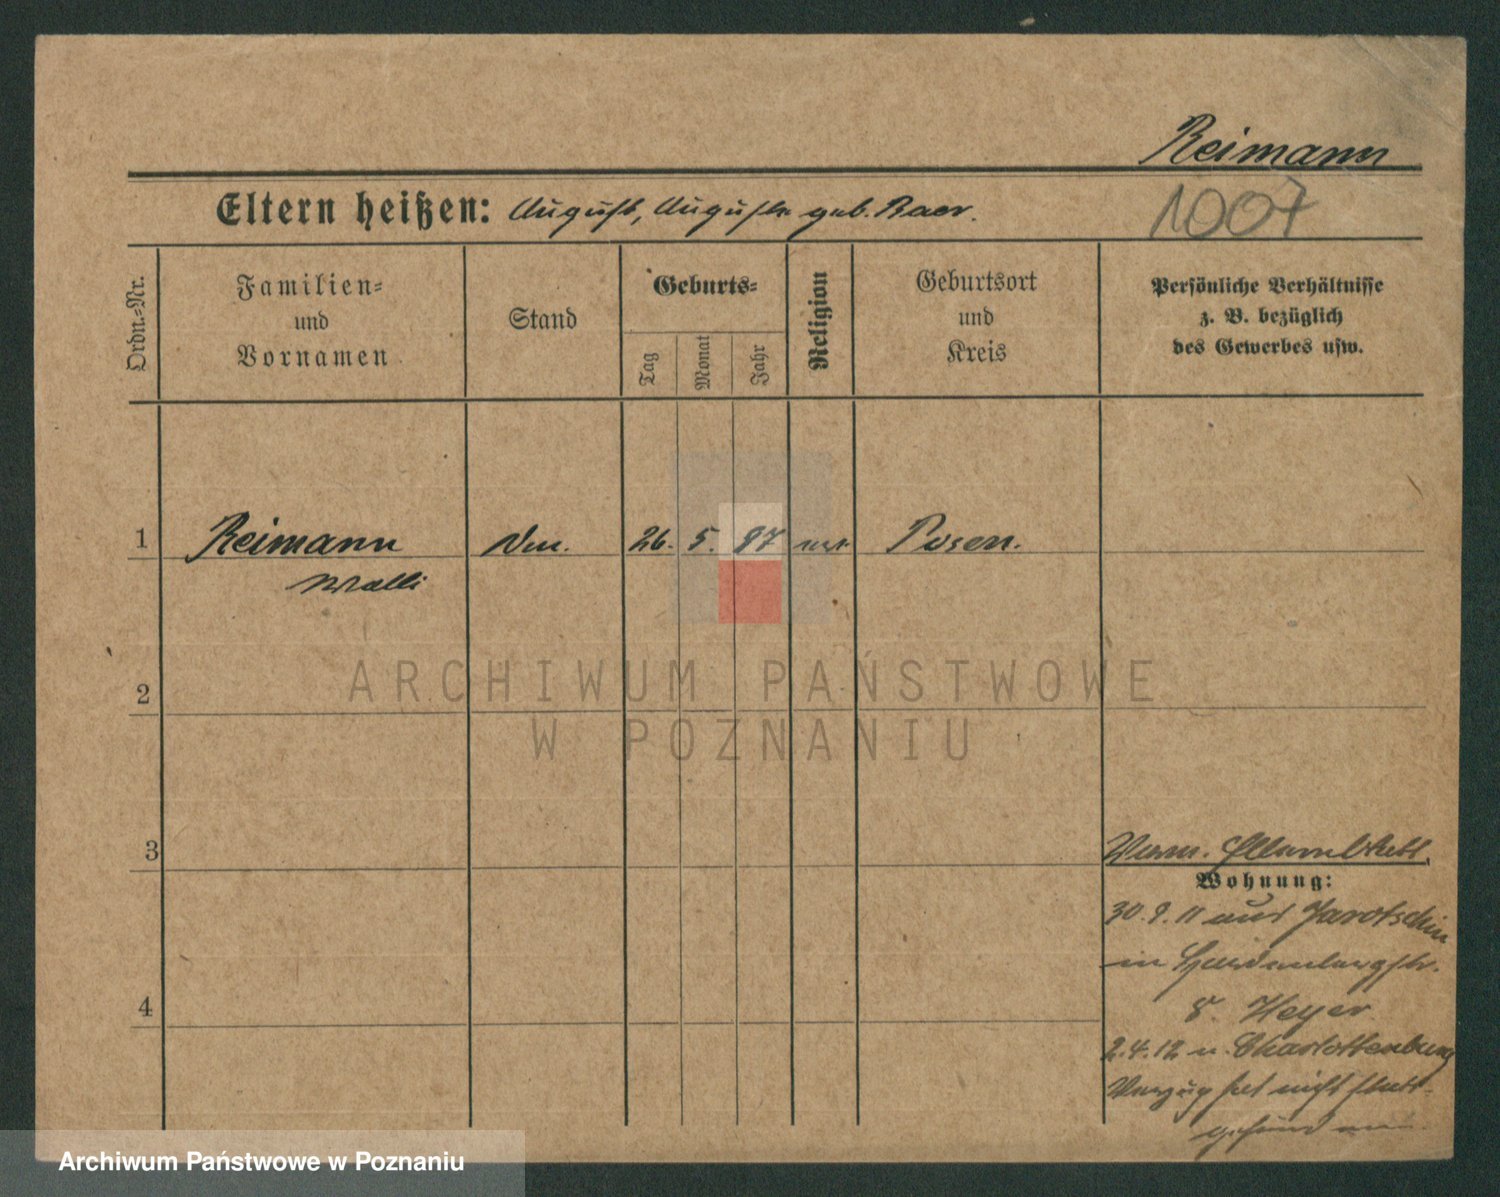 Reimann
1007
Eltern heißen: August, Auguste geb. Baer.
Ordn.-Nr.
Familien-
und
Vornamen
Stand
Geburts-
Tag
Monat
Jahr
Religion
Geburtsort
und
Kreis
Persönliche Verhältnisse
z. B. bezüglich
des Gewerbes usw.
1
Reimann
26. 5. 87
Posen.
Walli
2
ARCHIWUM PAŃSTWOWE
W POZNANIU
3
Wohnung:
30.9.11 aus Jarotschin
in
8. Heyer
4
2.4.12 n. Charlottenburg
Verzug hat nicht statt-
gefunden
Archiwum Państwowe w Poznaniu